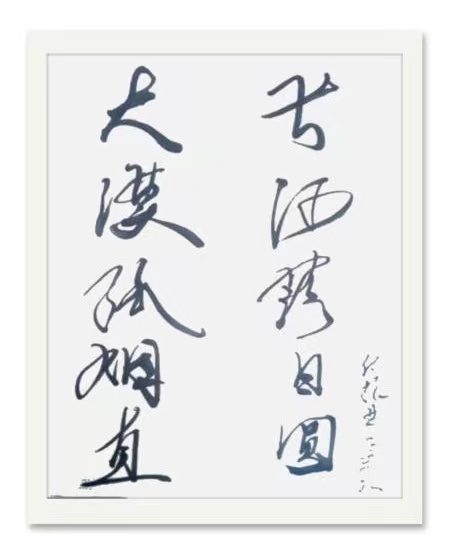 大漠孤烟直
长河落日圓